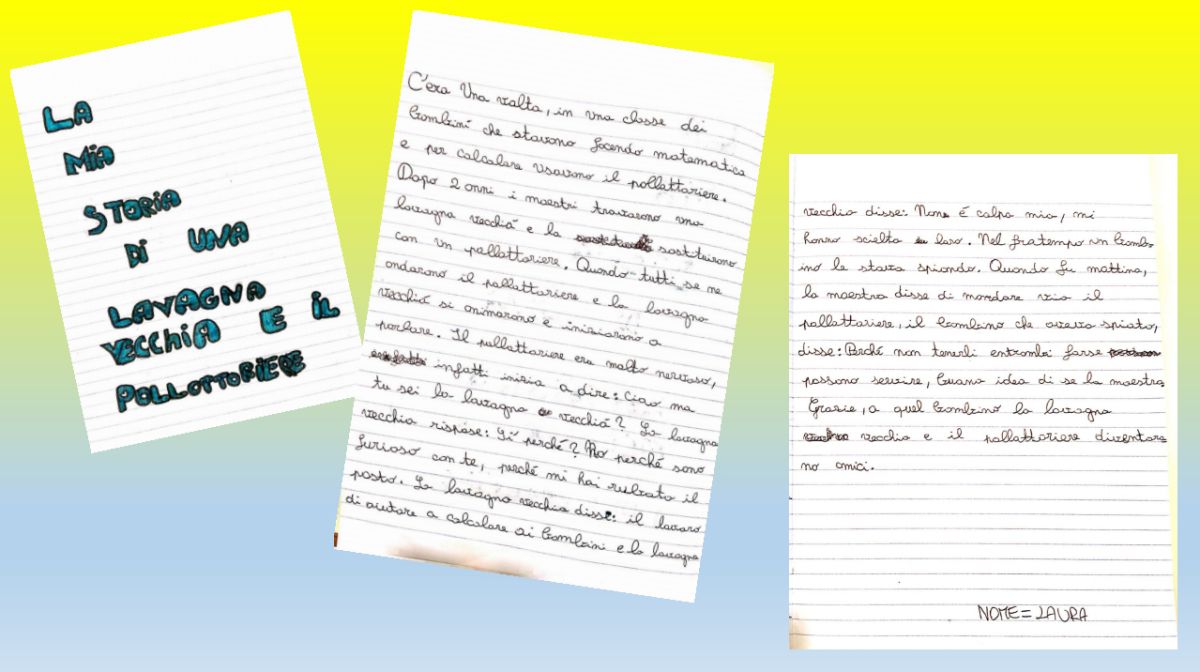 LA
MIA
STORIA
DI UNA
LAVAGNA
VECCHIA E IL
POLLOTTORIERE
C'era Una volta, in una classe dei
bambini che stavano facendo matematica
e per calcolare usavano il pallottoriere.
Dopo 2 anni i maestri trovarono una
lavagna vecchia e la sostituirono
con un pallottoriere. Quando tutti se ne
andarono il pallottoriere e la lavagna
vecchia si animarono e iniziarono a
parlare. Il pallottoriere era molto nervoso,
infatti inizia a dire: Ciao ma
tu sei la lavagna vecchia? La lavagna
vecchia rispose: Sí perché? No perché sono
furioso con te, perché mi hai rubato il
posto. La lavagna vecchia disse: il lavoro
di aiutare a calcolare ai bambini e la lavagna
vecchia disse: Non é colpa mia, mi
hanno scielta loro. Nel fratempo un bamb-
ino le stava spiando. Quando fu mattina,
la maestra disse di mandare via il
pallottoriere, il bambino che aveva spiato,
disse: Perché non tenerli entrambi forse
possono servire, buana idea di se la maestra
Grazie, a quel bambino la lavagna
vecchia e il pallottoriere diventaro
no amici.
NOME = LAURA